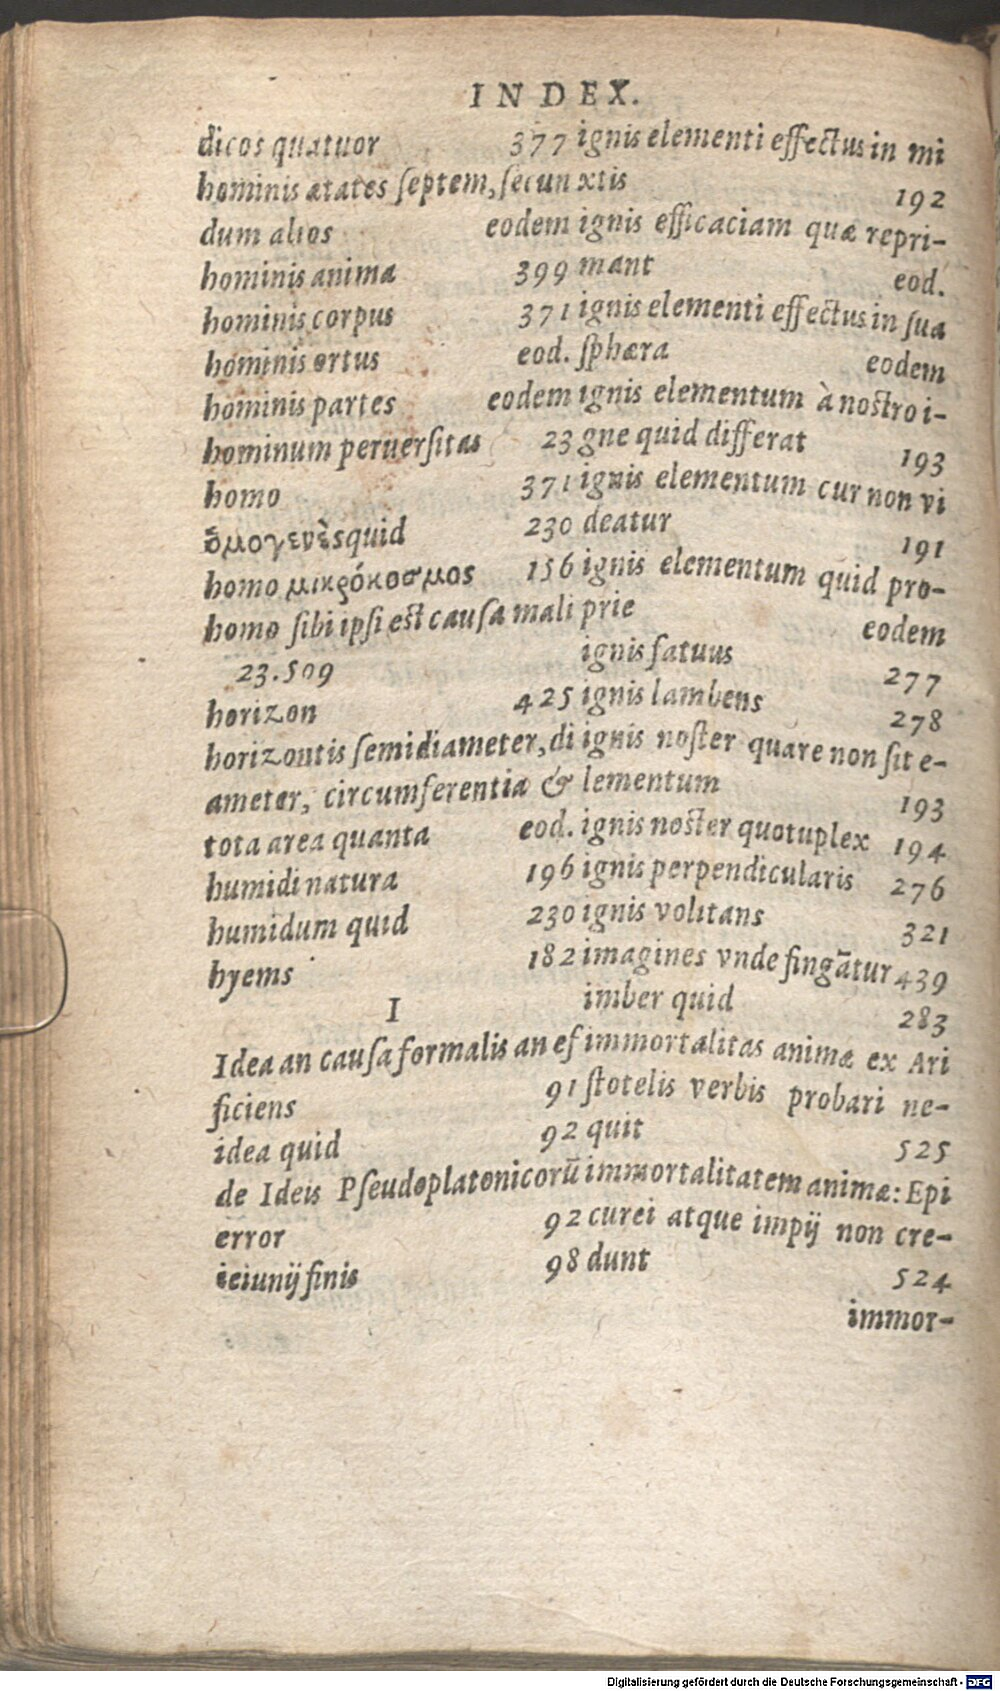 INDEX.
dicos quatuor 377
hominis ætates ſeptem, ſecun
dum alios eodem
hominis anima 399
hominis corpus 371
hominis ortus eod.
hominis partes eodem
hominum peruerſitas 23
homo 371
ὁμογενὲς quid 230
homo μικρόκοσμος 156
homo ſibi ipſi eſt cauſa mali
23.509
horizon 425
horizontis ſemidiameter, di
ameter, circumferentia &
tota area quanta eod.
humidi natura 196
humidum quid 230
hyems 182
I
Idea an cauſa formalis an ef
ficiens 91
idea quid 92
de Ideis Pſeudoplatonicorū
error 92
ieiunij finis 98
ignis elementi effectus in mi
xtis 192
ignis efficaciam quæ repri-
mant eod.
ignis elementi effectus in ſua
ſphæra eodem
ignis elementum à noſtro i-
gne quid differat 193
ignis elementum cur non vi
deatur 191
ignis elementum quid pro-
prie eodem
ignis fatuus 277
ignis lambens 278
ignis noſter quare non ſit e-
lementum 193
ignis noſter quotuplex 194
ignis perpendicularis 276
ignis volitans 321
imagines vnde fingātur 439
imber quid 283
immortalitas animæ ex Ari
ſtotelis verbis probari ne-
quit 525
immortalitatem animæ: Epi
curei atque impij non cre-
dunt 524
immor-
Digitalisierung gefördert durch die Deutsche Forschungsgemeinschaft - DFG